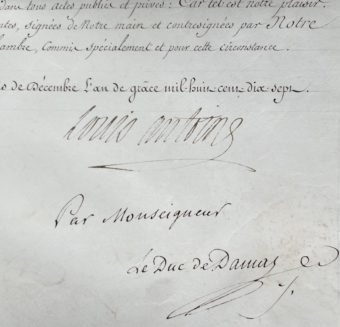 dans tous actes publics et privés : Car tel est notre plaisir.
ntes, signées de Notre main et contresignées par Notre
hambre, Commis spécialement et pour cette circonstance.
o de Décembre L'an de grâce mil-huit-cent-dix-sept.
Louis Antoine
Par Monseigneur
Le Duc de Damas